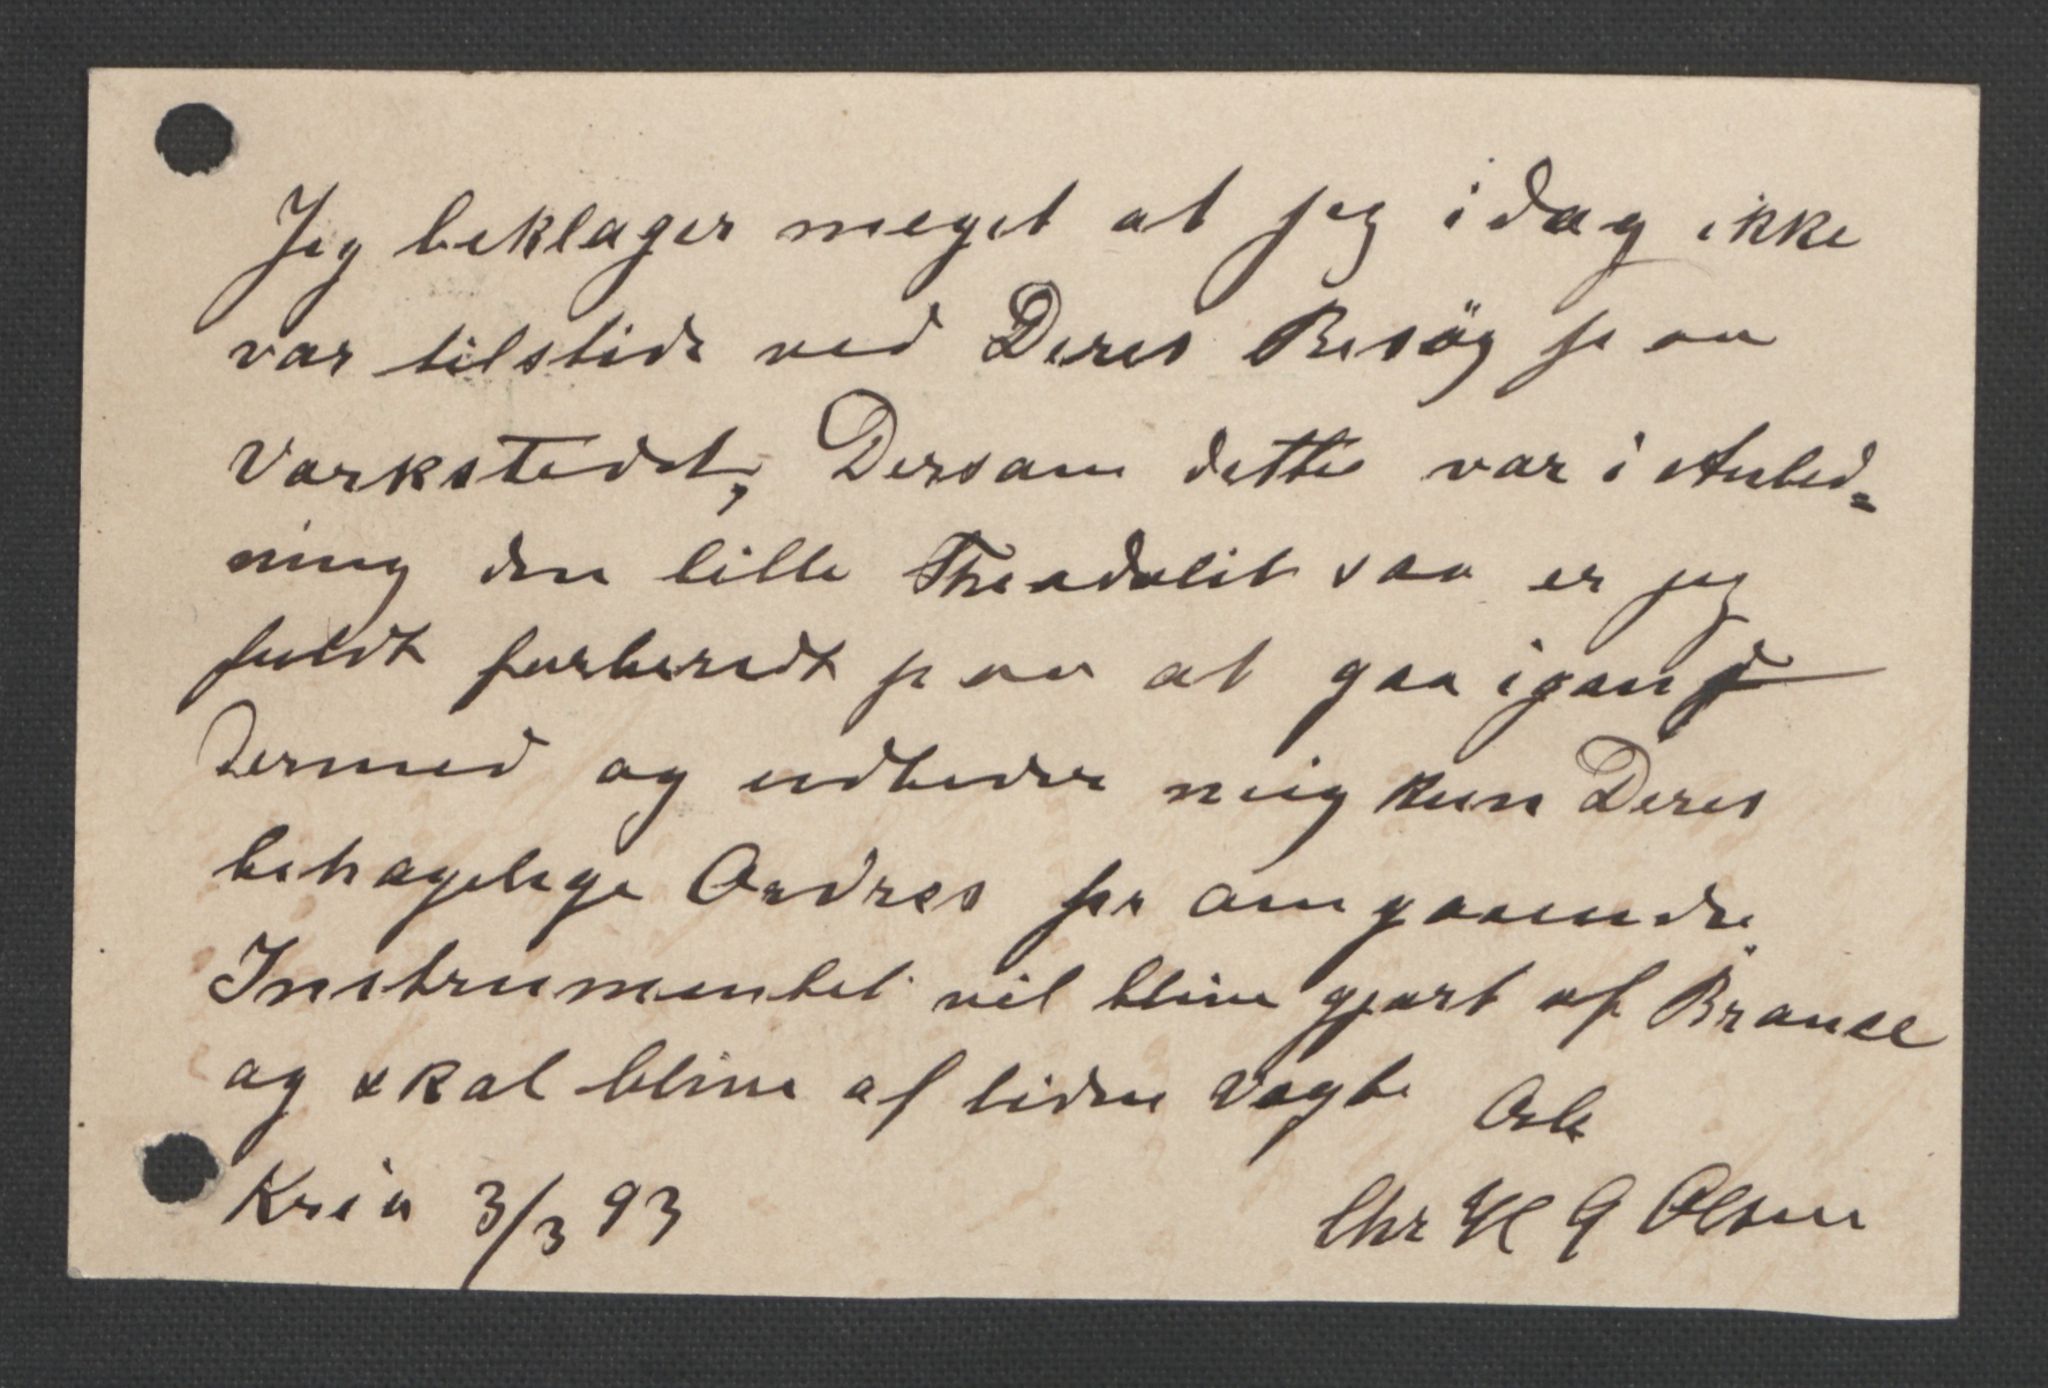 Jeg beklager meget at jeg idag ikke
var tilstide ved Deres Besög paa
Værkstedet, Dersom dette var i Anled-
ning den lille Theodolit saa er jeg
fuldt forberedt paa at gaa igang
dermed og udbeder mig kun Deres
behagelige Ordres pr omgaaende
Instrumentet vil blive gjort af Brance
og skal blive af liden Vægt
Kria 3/3 93
Chr H G Olsen